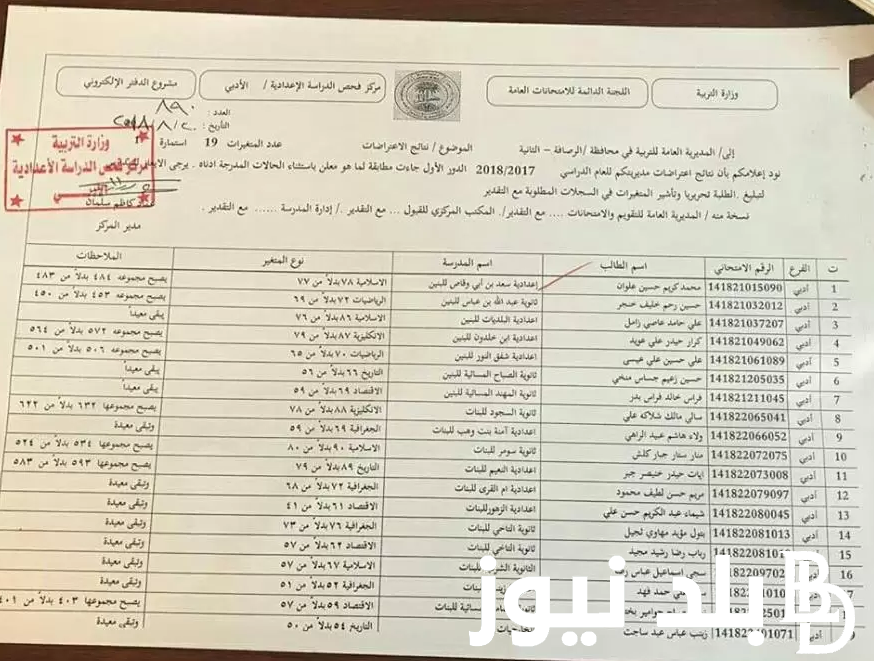 وزارة التربية
اللجنة الدائمة للامتحانات العامة
مركز فحص الدراسة الإعدادية / الأدبي
مشروع الدفتر الإلكتروني
العدد : ٨٩٠
التاريخ :
إلى/ المديرية العامة للتربية في محافظة /الرصافة – الثانية الموضوع / نتائج الاعتراضات عدد المتغيرات 19 استمارة
نود إعلامكم بأن نتائج اعتراضات مديريتكم للعام الدراسي 2018/2017 الدور الأول جاءت مطابقة لما هو معلن باستثناء الحالات المدرجة ادناه . يرجى
لتبليغ .الطلبة تحريريا وتأشير المتغيرات في السجلات المطلوبة مع التقدير
نسخة منه / المديرية العامة للتقويم والامتحانات .... مع التقدير/. المكتب المركزي للقبول ... مع التقدير ./ إدارة المدرسة ...... مع التقدير .
وزارة التربية
مركز فحص الدراسة الأعدادية
كاظم سلمان
مدير المركز
ت الفرع الرقم الامتحاني اسم الطالب اسم المدرسة نوع المتغير الملاحظات
1 أدبي 141821015090 محمد كريم حسين علوان إعدادية سعد بن أبي وقاص للبنين الاسلامية ٧٨ بدلاً من ٧٧ يصبح مجموعه ٤٨٤ بدلاً من ٤٨٣
2 أدبي 141821032012 حسين رحم خليف خنجر ثانوية عبد الله بن عباس للبنين الرياضيات ٧٢ بدلاً من ٦٩ يصبح مجموعه ٤٥٣ بدلاً من ٤٥٠
3 أدبي 141821037207 علي حامد عاصي زامل اعدادية البلديات للبنين الاسلامية ٨٦ بدلاً من ٧٦ يبقى معيداً
4 أدبي 141821049062 كرار حيدر علي عويد اعدادية ابن خلدون للبنين الانكليزية ٨٧ بدلاً من ٧٩ يصبح مجموعه ٥٧٢ بدلاً من ٥٦٤
5 أدبي 141821061089 علي حسين علي عيسى اعدادية شفق النور للبنين الرياضيات ٧٠ بدلاً من ٦٥ يصبح مجموعه ٥٠٦ بدلاً من ٥٠١
6 أدبي 141821205035 حسين زغيم جساس منخي ثانوية الصباح المسائية للبنين التاريخ ٦٦ بدلاً من ٥٦ يبقى معيداً
7 أدبي 141821211045 فراس خالد فراس بدر ثانوية المهند المسائية للبنين الاقتصاد ٦٩ بدلاً من ٥٩ يبقى معيداً
8 أدبي 141822065041 سالي مالك شلاكه علي ثانوية السجود للبنات الانكليزية ٨٨ بدلاً من ٧٨ يصبح مجموعها ٦٣٢ بدلاً من ٦٢٢
9 أدبي 141822066052 ولاء هاشم عبيد الراهي إعدادية آمنة بنت وهب للبنات الجغرافية ٦٩ بدلاً من ٥٩ وتبقى معيدة
10 أدبي 141822072075 منار ستار جبار كلش ثانوية سومر للبنات الاسلامية ٩٠ بدلاً من ٨٠ يصبح مجموعها ٥٣٤ بدلاً من ٥٢٤
11 أدبي 141822073008 آيات حيدر خنيصر جبر اعدادية النعيم للبنات التاريخ ٨٩ بدلاً من ٧٩ يصبح مجموعها ٥٩٣ بدلاً من ٥٨٣
12 أدبي 141822079097 مريم حسن لطيف محمود اعدادية ام القرى للبنات الجغرافية ٧٢ بدلاً من ٦٨ وتبقى معيدة
13 أدبي 141822080045 شيماء عبد الكريم حسن علي اعدادية الزهور للبنات الاقتصاد ٦١ بدلاً من ٤١ وتبقى معيدة
14 أدبي 141822081013 بتول مؤيد مهاوي تجيل ثانوية التاخي للبنات الجغرافية ٧٦ بدلاً من ٧٣ وتبقى معيدة
15 أدبي رباب رضا رشيد مجيد ثانوية التاخي للبنات الاقتصاد ٦٢ بدلاً من ٥٧ وتبقى معيدة
16 أدبي سجى اسماعيل عباس الثانوية الاسلامية ٦٧ بدلاً من ٥٧ وتبقى معيدة
حمد فهد الجغرافية ٥٢ بدلاً من ٥١ وتبقى معيدة
المسائية للبنات الاقتصاد ٥٩ بدلاً من ٥٧ يصبح مجموعها ٤٠٣ بدلاً من ٤٠١
أدبي زينب عباس عبد ساجت التاريخ ٥٤ بدلاً من ٥٠ وتبقى معيدة
بلد نيوز